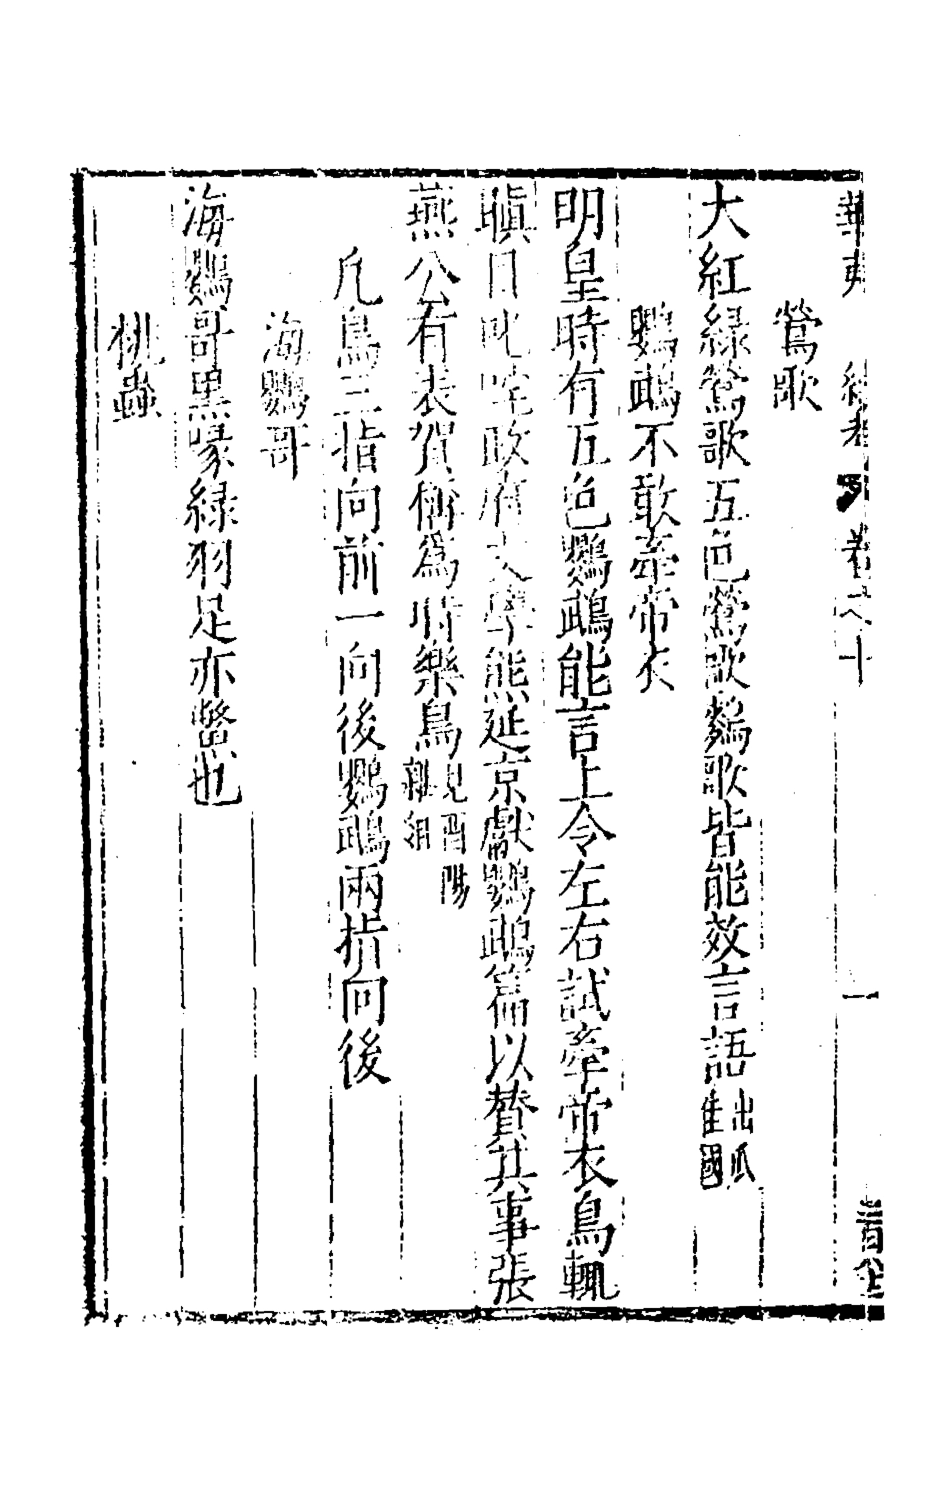 鶯歌
大紅綠鶯歌五色鶯歌鷯歌皆能效言語出爪
哇國
鸚鵡不敢牽帝衣
明皇時有五色鸚鵡能言上令左右試牽帝衣鳥輒
瞋目叱咤政府文學熊延京獻鸚鵡篇以贊其事張
燕公有表賀稱爲時樂鳥見酉陽
雜俎
凡鳥三指向前一向後鸚鵡兩指向後
海鸚哥
海鸚哥黑喙綠羽足亦鱉也
桃蟲